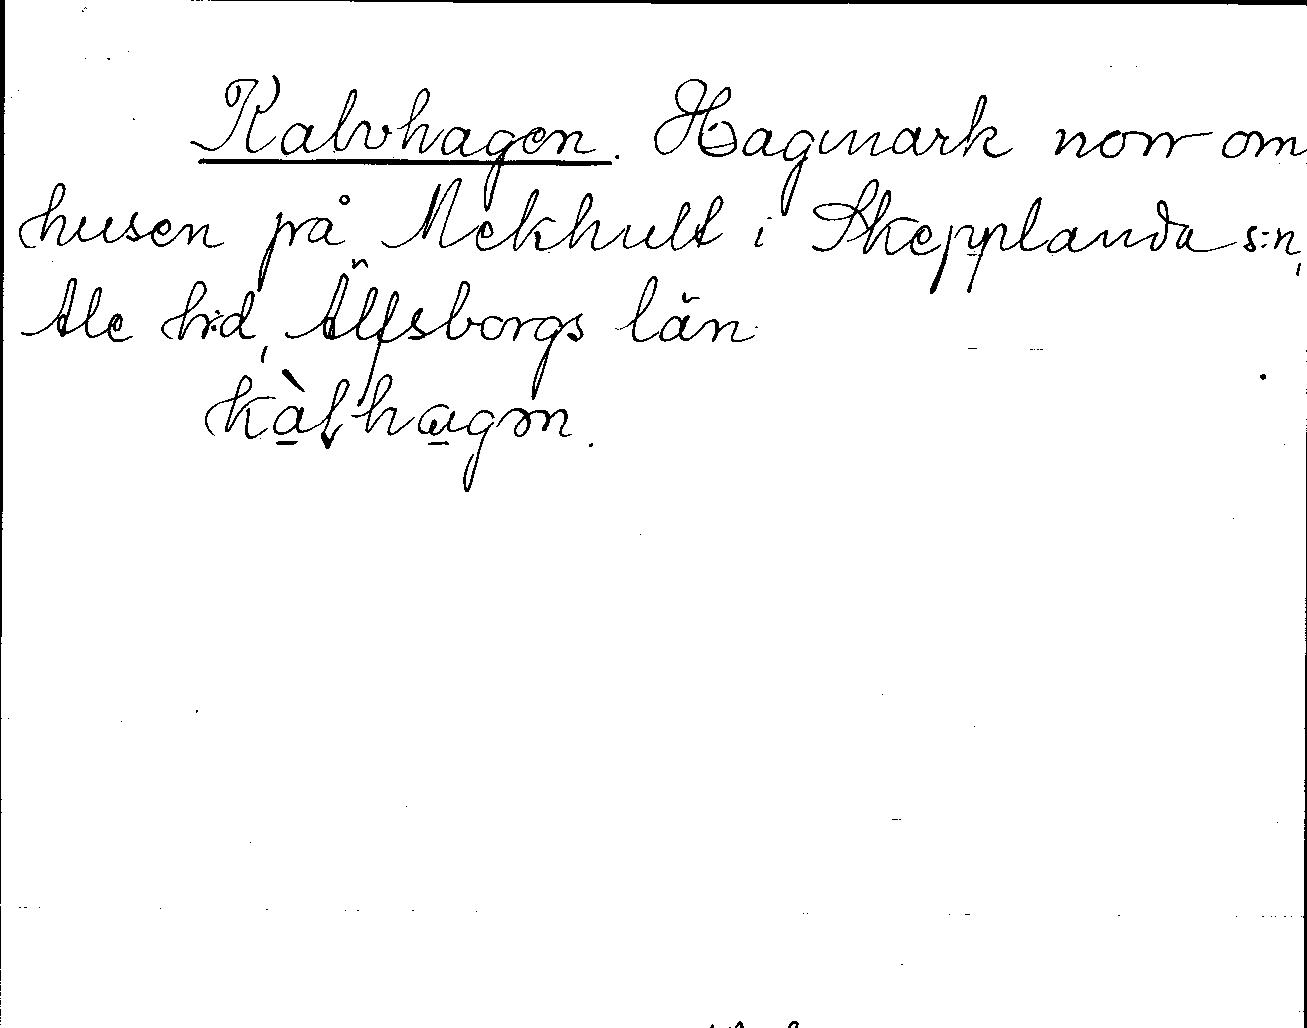 Kalvhagen. Hagmark norr om
husen på Mekhult i Skepplanda s:n,
Ale h:d, Älfsborgs län
kàlhagən.